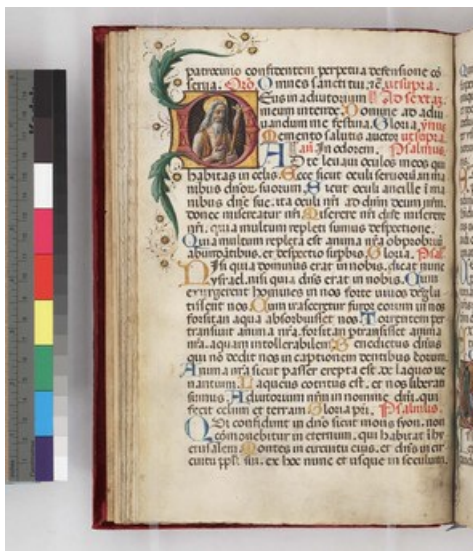 patrocinio confitentem perpetua defensione cō
serua. Orō. Omnes sancti tui. r̄. ut supra.
Deus in adiutorium Ad sextaz.
meum intende. Domine ad adiu
uandum me festina. Gloria. ymnus
Memento salutis auctor ut supra.
an̄. In odorem. Psalmus.
Ad te leuaui oculos meos qui
habitas in celis. Ecce sicut oculi seruorum in ma
nibus dn̄or̄ suorum. Sicut oculi ancille ī ma
nibus dn̄e sue. ita oculi nr̄i ad dn̄m deum nr̄m.
donec misereatur nr̄i. Miserere nr̄i dn̄e miserere
nr̄i. quia multum repleti sumus despectione.
Quia multum repleta est anima nr̄a obprobriū
abundātibus. et despectio supbis. Gloria. Psal.
Nisi quia dominus erat in nobis. dicat nunc
ysrael. nisi quia dn̄s erat in nobis. Cum
exurgerent homines in nos forte uiuos deglu
tissent nos. Cum irasceretur furor eorum in nos
forsitan aqua absorbuisset nos. Torrentem per
transiuit anima nr̄a. forsitan ptransisset anima
nr̄a. aquam intollerabilem. Benedictus dn̄s
qui nō dedit nos in captionem dentibus eorum.
Anima nr̄a sicut passer erepta est. de laqueo ue
nantium. Laqueus cōtritus est. et nos liberati
sumus. Adiutorium nr̄m in nomine dn̄i. qui
fecit celum et terram. Gloria pri. Psalmus.
Qui confidunt in dn̄o sicut mons syon. non
cōmouebitur in eternum. qui habitat ī hy
erusalem. Montes in circuitu eius. et dn̄s in cir
cuitu ppl̄i sui. ex hoc nunc et usque in seculum.